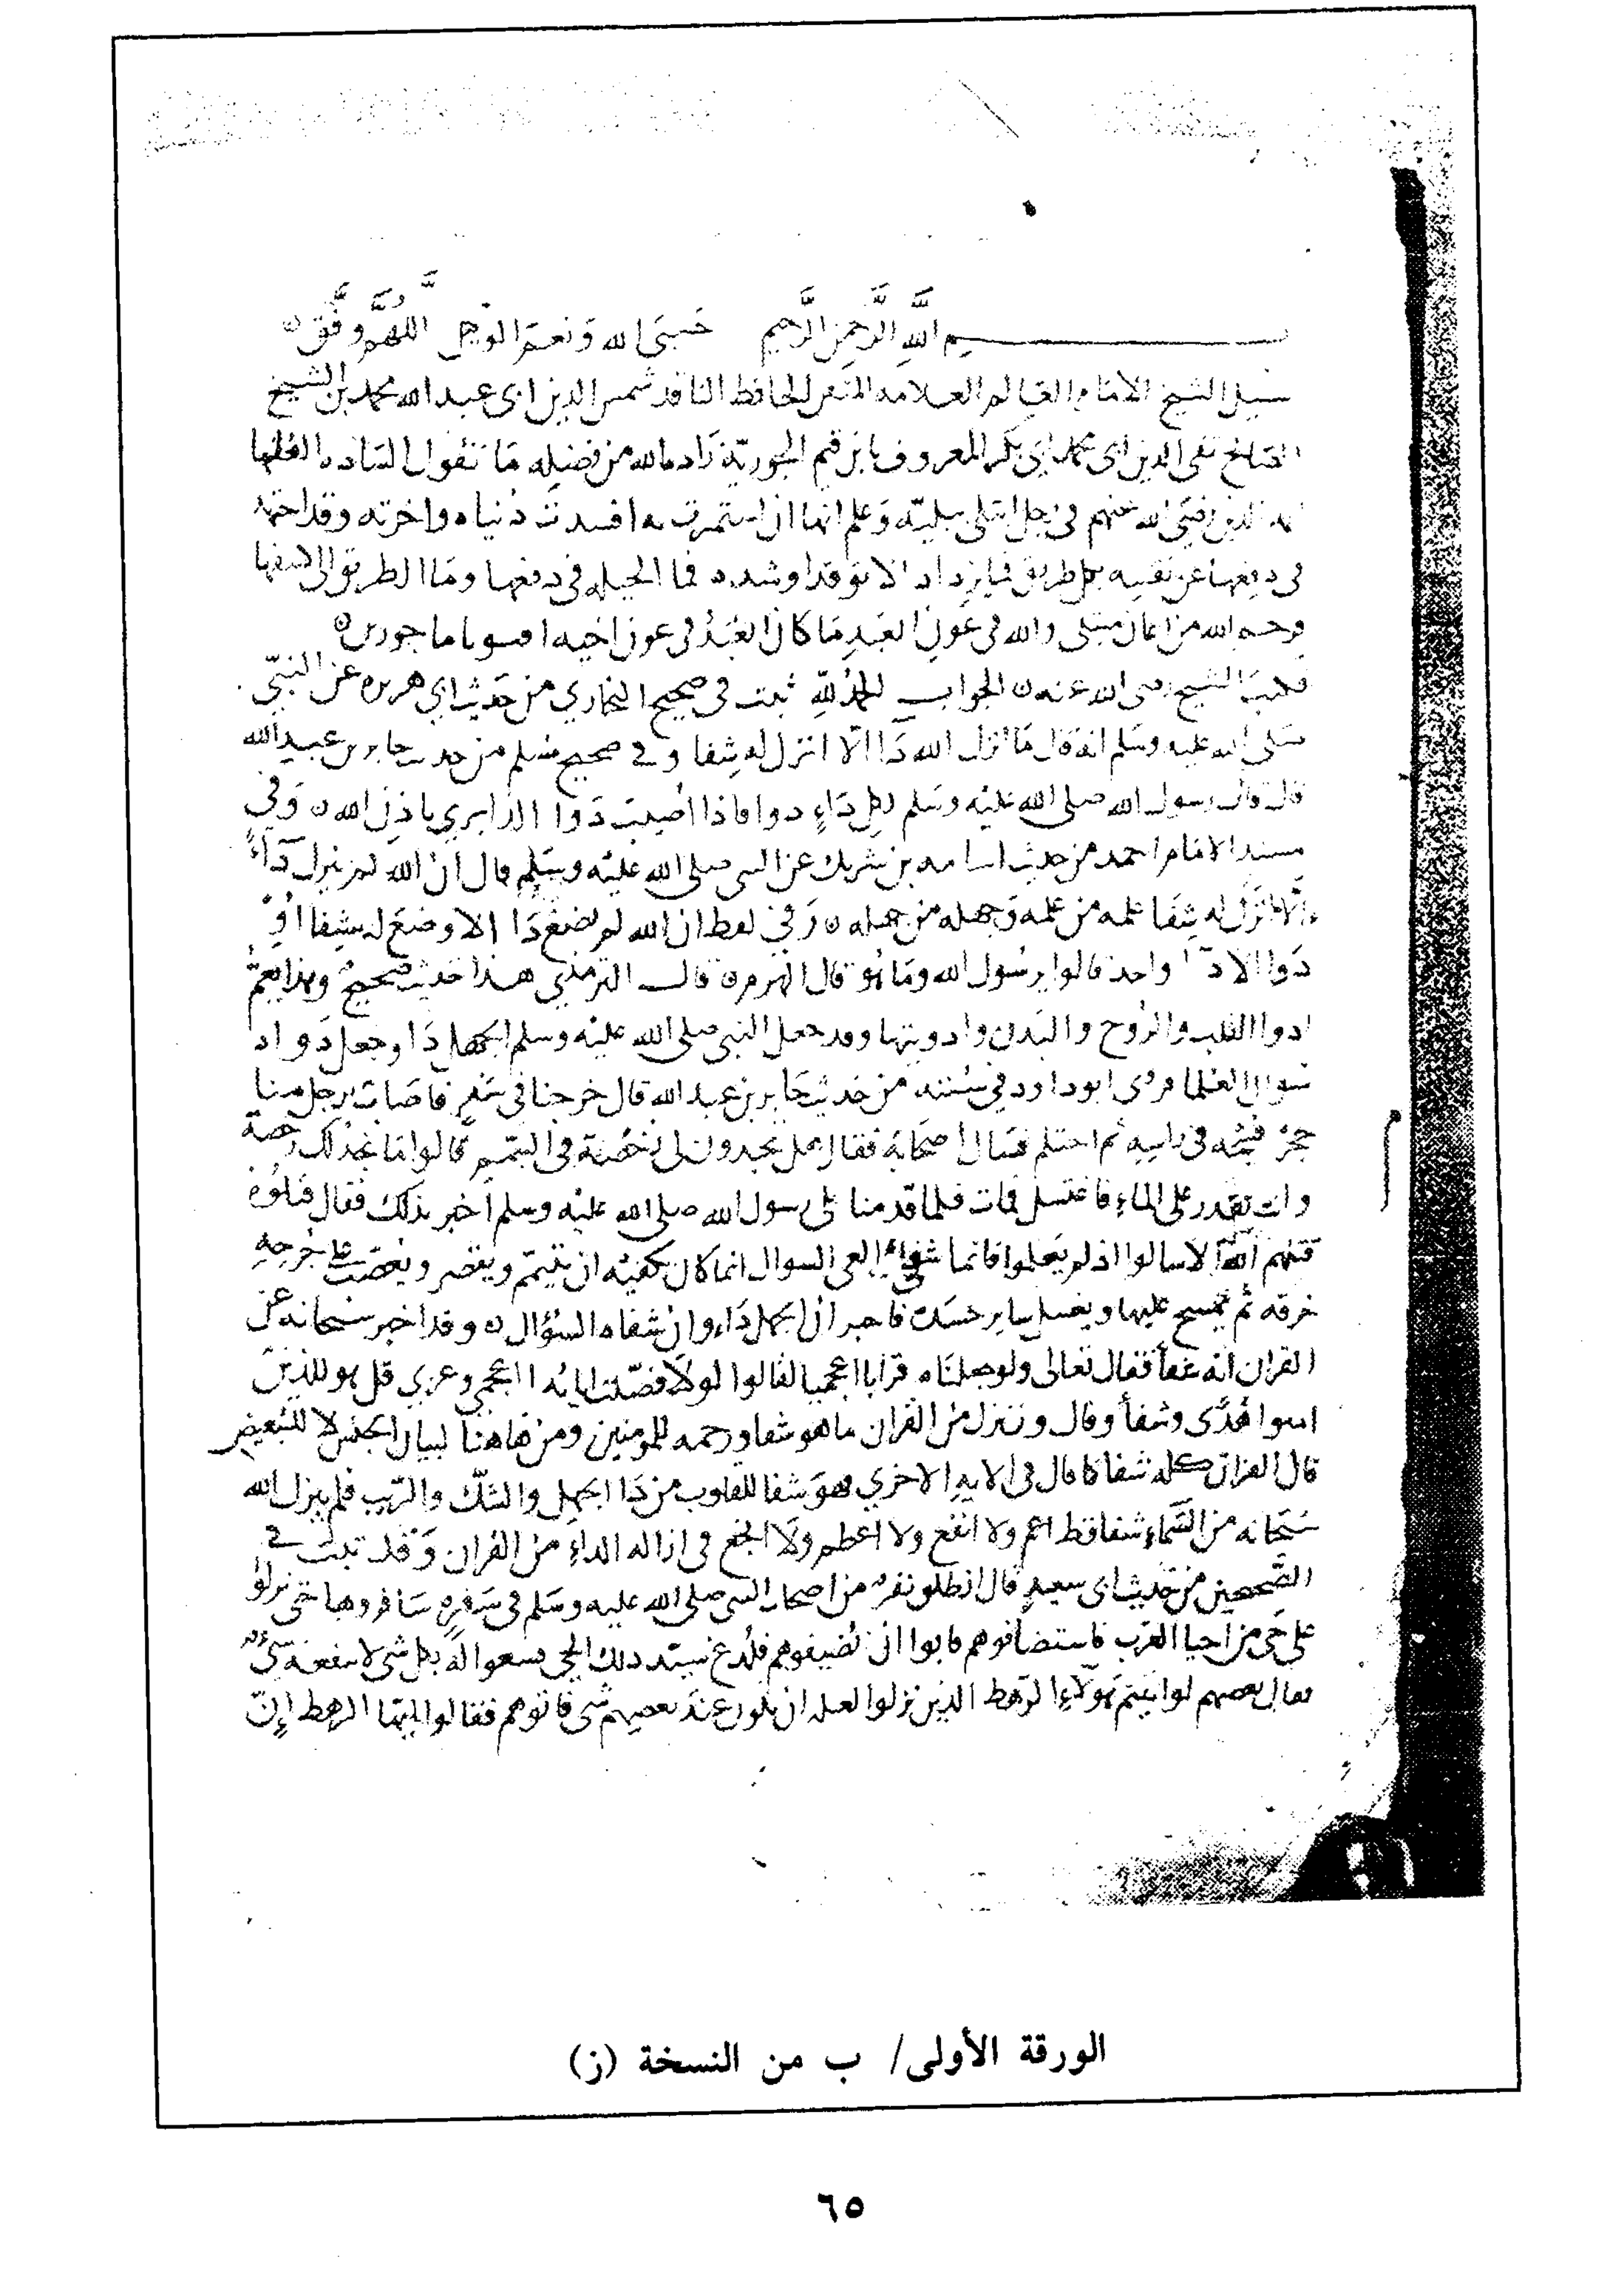 بسم الله الرحمن الرحيم حسبي الله ونعم الوكيل اللهم وفق
سيل الشيخ الامام العالم العلامه المتقن الحافظ الناقد شمس الدين ابي عبد الله محمد بن الشيخ
الصالح تقي الدين ابي بكر المعروف بابن قيم الجوزية زاده الله من فضله ما تقول الساده الفقها
ايمه الدين رضي الله عنهم في رجل ابتلي ببلية وعلم انها ان استمرت به افسدت دنياه واخرته وقد اجتهد
في دفعها عن نفسه بكل طريق فما يزداد الا توقدا وشده فما الحيله في دفعها وما الطريق الى كشفها
فرحم الله من اعان مبتلى والله في عون العبد ما كان العبد في عون اخيه افتونا ماجورين
فكتب الشيخ رضى الله عنه الجواب الحمد لله ثبت في صحيح البخاري من حديث ابي هريره عن النبي
صلى الله عليه وسلم انه قال ما انزل الله دا الا انزل له شفا وفي صحيح مسلم من حديث جابر بن عبد الله
قال قال رسول الله صلى الله عليه وسلم لكل داء دوا فاذا اصيب دوا الدا بري باذن الله وفي
مسند الامام احمد من حديث اسامه بن شريك عن النبي صلى الله عليه وسلم قال ان الله لم ينزل داء
الا انزل له شفا علمه من علمه وجهله من جهله وفي لفظ ان الله لم يضع دا الا وضع له شفا او
دوا الا دآ واحد قالوا يرسول الله وما هو قال الهرم قال الترمذي هذا حديث صحيح وهذا يعم
ادوا القلب والروح والبدن وادويتها وقد جعل النبي صلى الله عليه وسلم الجهل دا وجعل دواه
سوال العلما فروى ابو داود في سننه من حديث جابر بن عبد الله قال خرجنا في سفر فاصاب رجل منا
حجر فشجه في راسه ثم احتلم فسال اصحابه فقال هل تجدون لي رخصة في التيمم قالوا ما نجد لك رخصة
وانت تقدر على الماء فاغتسل فمات فلما قدمنا على رسول الله صلى الله عليه وسلم اخبر بذلك فقال قتلوه
قتلهم الله الا سالوا اذ لم يعلموا فانما شفاء العي السوال انما كان يكفيه ان يتيمم ويعصر ويعصب على جرحه
خرقه ثم يمسح عليها ويغسل ساير جسده فاخبر ان الجهل داء وان شفاه السؤال وقد اخبر سبحانه عن
القران انه شفأ فقال تعالى ولو جعلناه قرانا اعجميا لقالوا لولا فصلت اياته ااعجمي وعربي قل هو للذين
امنوا هدى وشفأ وقال وننزل من القران ما هو شفا ورحمه للمومنين ومن هاهنا لبيان الجنس لا للتبعيض
قال القران كله شفا كما قال في الايه الاخري فهو شفا للقلوب من دا الجهل والشك والريب فلم ينزل الله
سبحانه من السماء شفا قط اعم ولا انفع ولا اعظم ولا انجع في ازاله الداء من القران وقد ثبت في
الصحيحين من حديث ابي سعيد قال انطلق نفر من اصحاب النبي صلى الله عليه وسلم في سفره سافروها حتى نزلوا
على حي من احيا العرب فاستضافوهم فابوا ان يضيفوهم فلدغ سيد ذلك الحي فسعوا له بكل شي لا ينفعه شي
فقال بعضهم لو اتيتم هولاء الرهط الذين نزلوا لعله ان يكون عند بعضهم شي فاتوهم فقالوا يايها الرهط إن
الورقة الأولى/ ب من النسخة (ز)
٦٥